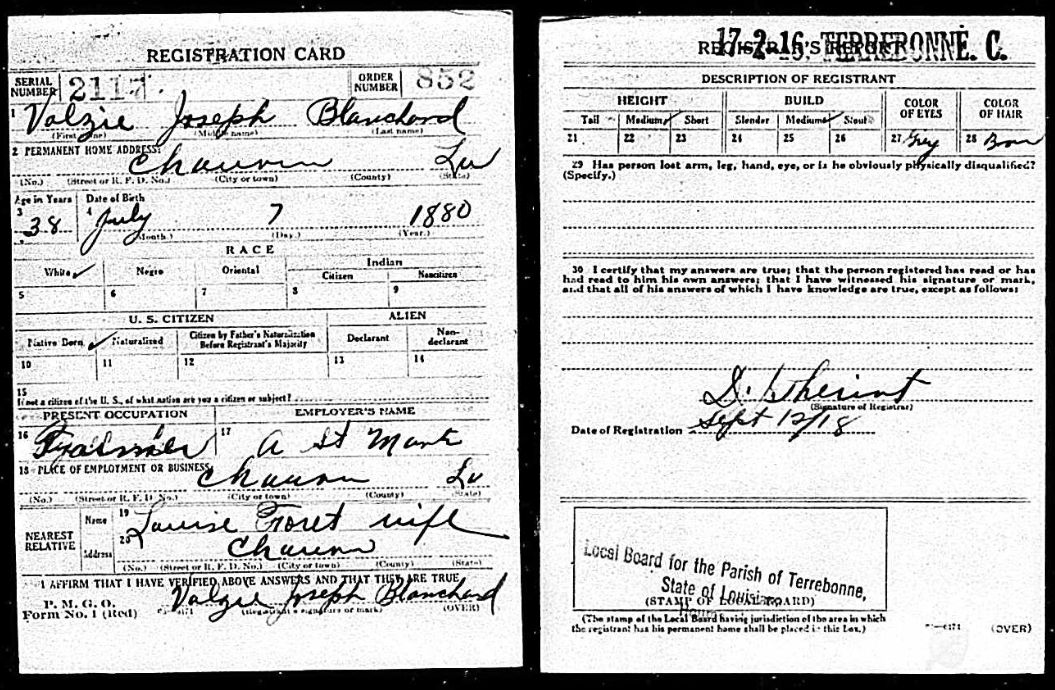 REGISTRATION CARD
SERIAL NUMBER 2117 ORDER NUMBER 852
1 Valzie Joseph Blanchard
(First name) (Middle name) (Last name)
2 PERMANENT HOME ADDRESS:
Chauvin La
(No.) (Street or R. F. D. No.) (City or town) (County) (State)
Age in Years Date of Birth
3 38 4 July 7 1880
(Month.) (Day.) (Year.)
RACE
White ✓ Negro Oriental Indian
Citizen Noncitizen
5 6 7 8 9
U. S. CITIZEN ALIEN
Native Born ✓ Naturalized Citizen by Father's Naturalization Before Registrant's Majority Declarant Non-declarant
10 11 12 13 14
15
If not a citizen of the U. S., of what nation are you a citizen or subject?
PRESENT OCCUPATION EMPLOYER'S NAME
16 17 A St
18 PLACE OF EMPLOYMENT OR BUSINESS:
Chauvin La
(No.) (Street or R. F. D. No.) (City or town) (County) (State)
NEAREST RELATIVE Name 19 Louise Foret wife
Address 20 Chauvin
(No.) (Street or R. F. D. No.) (City or town) (County) (State)
I AFFIRM THAT I HAVE VERIFIED ABOVE ANSWERS AND THAT THEY ARE TRUE
P. M. G. O.
Form No. 1 (Red) Valzie Joseph Blanchard
(Registrant's signature or mark) (OVER)
17-2-16. TERREBONNE. C.
REGISTRAR'S REPORT
DESCRIPTION OF REGISTRANT
HEIGHT BUILD COLOR OF EYES COLOR OF HAIR
Tall Medium ✓ Short Slender Medium ✓ Stout
21 22 23 24 25 26 27 Grey 28
29 Has person lost arm, leg, hand, eye, or is he obviously physically disqualified?
(Specify.)
30 I certify that my answers are true; that the person registered has read or has
had read to him his own answers; that I have witnessed his signature or mark,
and that all of his answers of which I have knowledge are true, except as follows:
(Signature of Registrar)
Date of Registration Sept 12/18
Local Board for the Parish of Terrebonne,
State of Louisiana,
(STAMP OF LOCAL BOARD)
(The stamp of the Local Board having jurisdiction of the area in which
the registrant has his permanent home shall be placed in this box.)
(OVER)